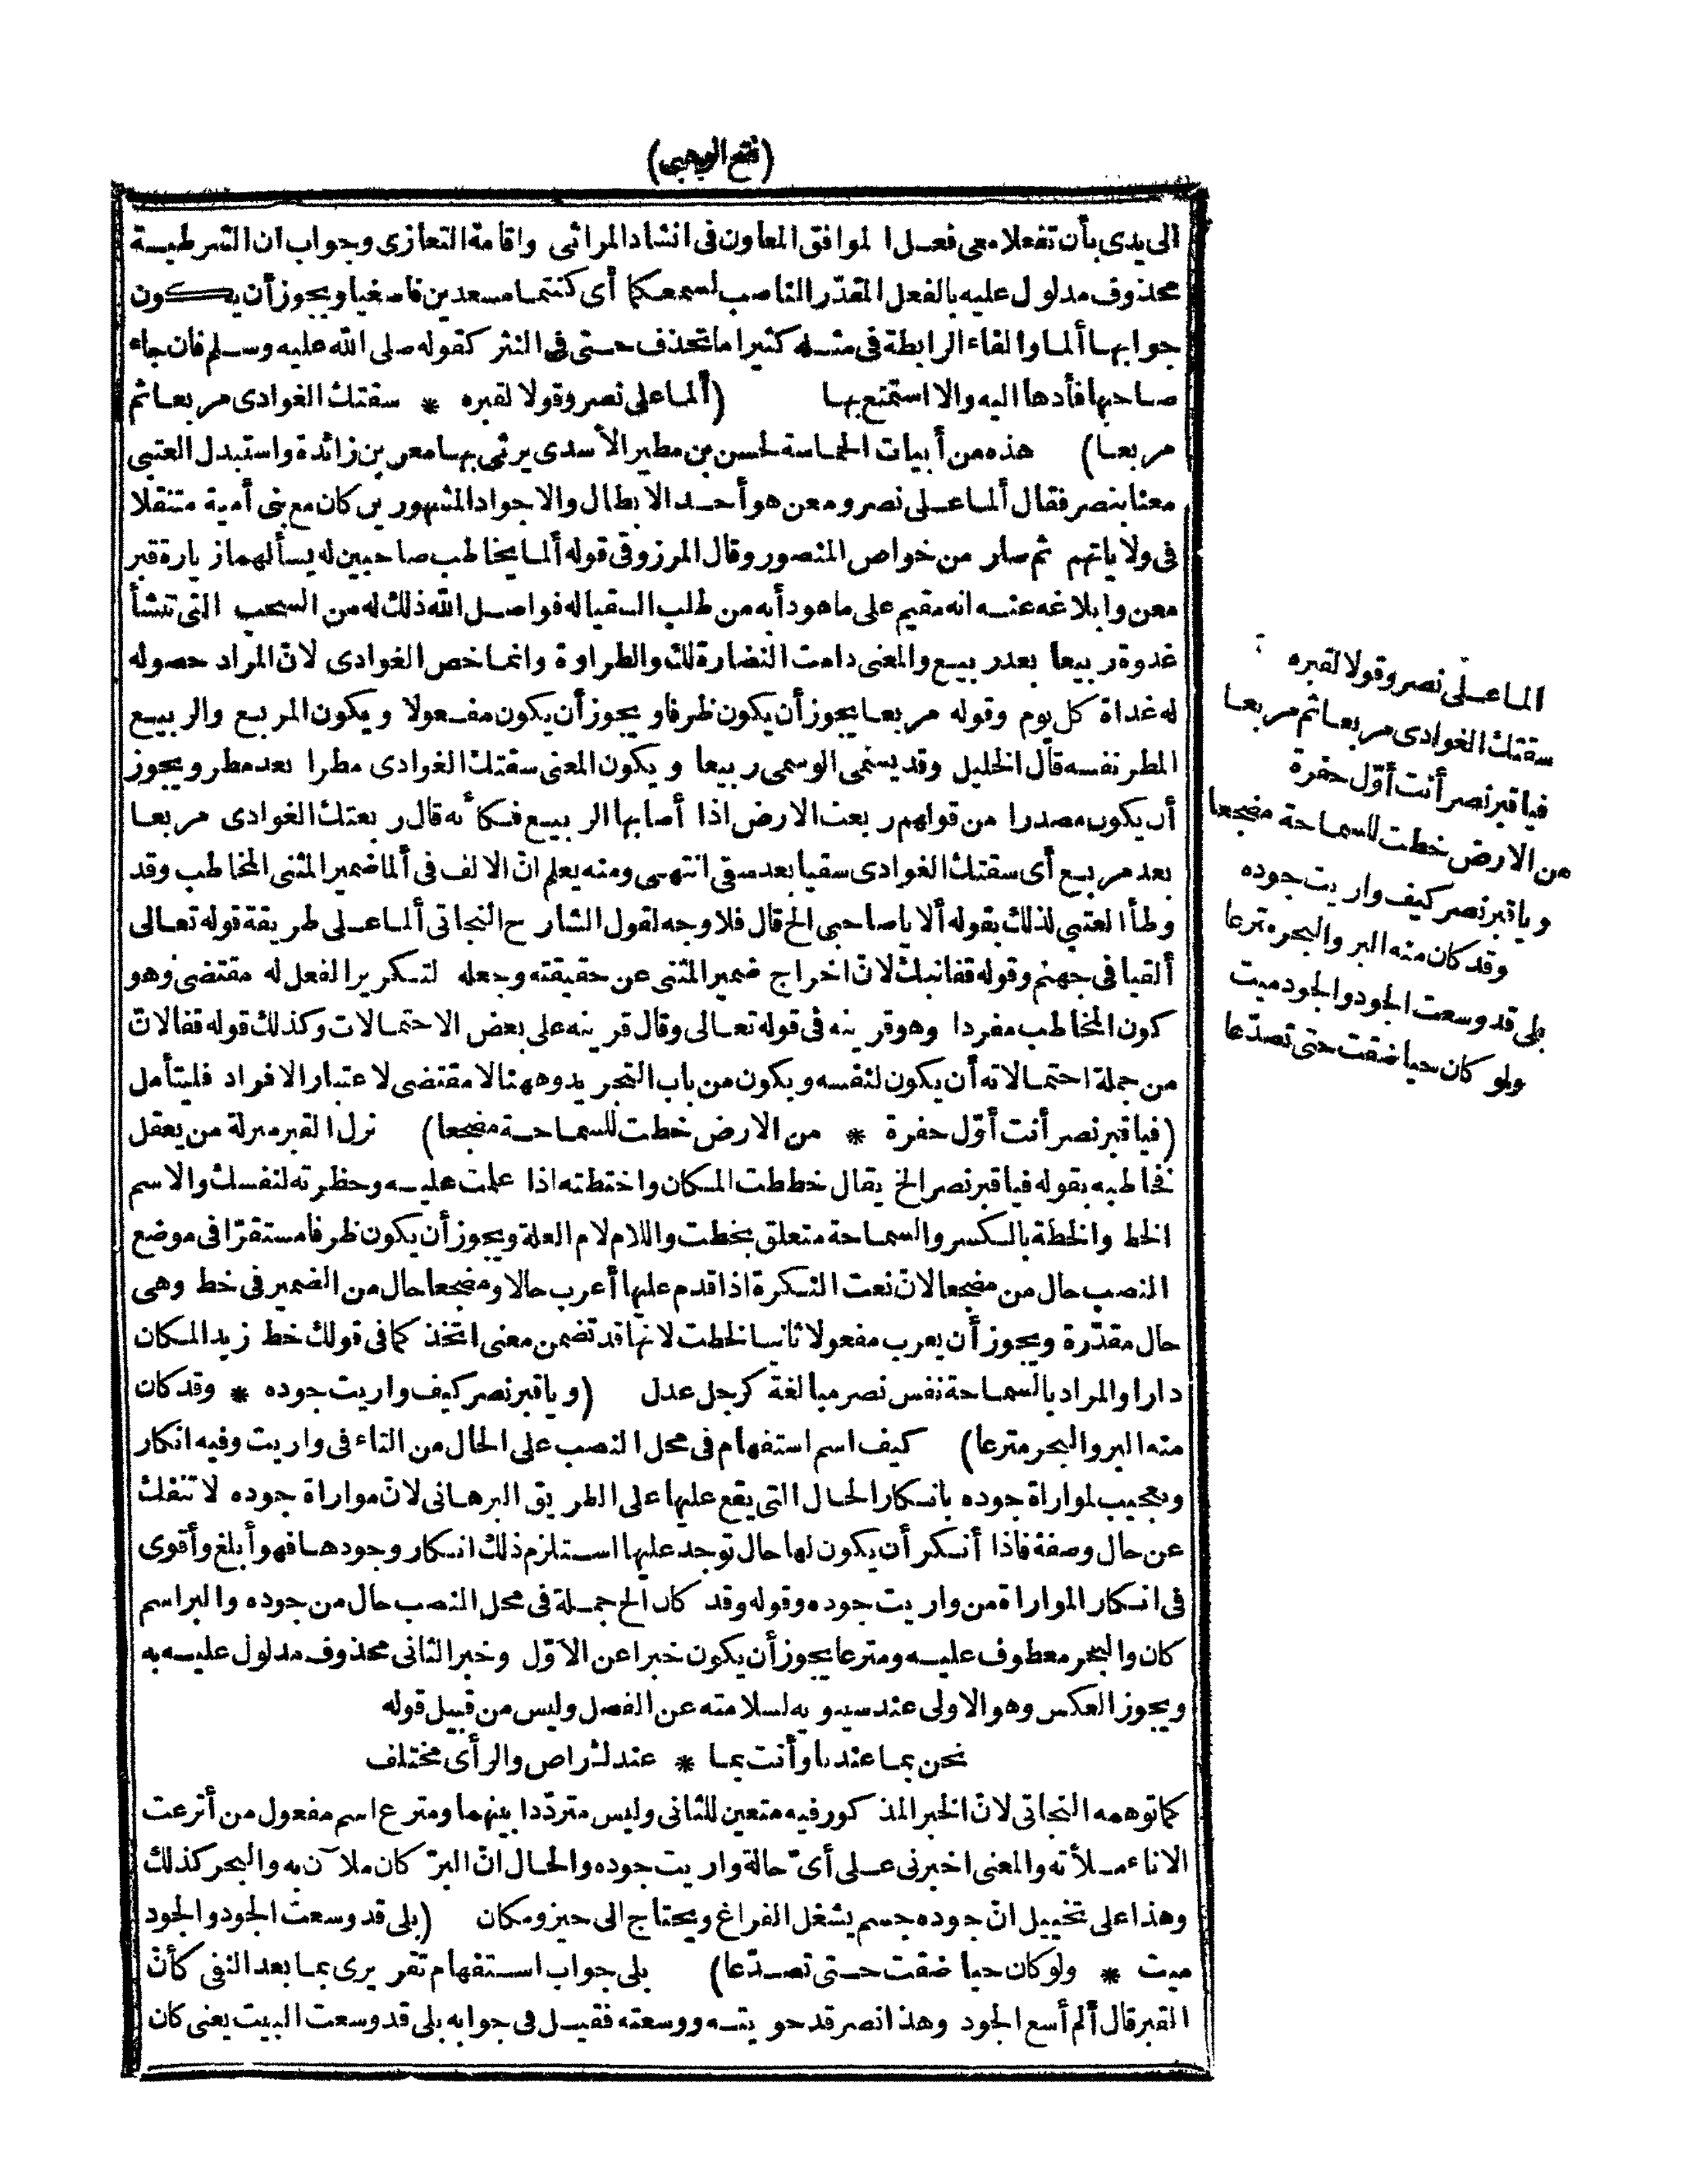 (فتح الوهبي)
الى يدى بأن تفعلا معى فعل الموافق المعاون فى انشاد المراثى واقامة التعازى وجواب ان الشرطية
محذوف مدلول عليه بالفعل المقدّر الناصب لسمعكما أى كنتما مسعدين فاصغيا ويجوز أن يكون
جوابها ألما والقاء الرابطة فى مثله كثيرا ما تحذف حتى فى النثر كقوله صلى الله عليه وسلم فان جاء
صاحبها فأدها اليه والا استمتع بها (ألما على نصر وقولا لقبره * سقتك الغوادى مربعا ثم
مربعا) هذه من أبيات الحماسة لحسن بن مطير الأسدى يرثى بها معن بن زائدة واستبدل العتبى
معنا بنصر فقال ألما على نصر ومعن هو أحد الابطال والاجواد المشهورين كان مع بنى أمية متنقلا
فى ولاياتهم ثم صار من خواص المنصور وقال المرزوقى قوله ألما يخاطب صاحبين له يسألهما زيارة قبر
معن وابلاغه عنه انه مقيم على ما هو دأبه من طلب السقيا له فواصل الله ذلك له من السحب التى تنشأ
غدوة ربيعا بعد ربيع والمعنى دامت النضارة لك والطراوة وانما خص الغوادى لانّ المراد حصوله
له غداة كل يوم وقوله مربعا يجوز أن يكون ظرفا ويجوز أن يكون مفعولا ويكون المربع والربيع
المطر نفسه قال الخليل وقد يسمى الوسمى ربيعا ويكون المعنى سقتك الغوادى مطرا بعد مطر ويجوز
أن يكون مصدرا من قولهم ربعت الارض اذا أصابها الربيع فكأنه قال ربعتك الغوادى مربعا
بعد مربع أى سقتك الغوادى سقيا بعد سقى انتهى ومنه يعلم انّ الالف فى ألما ضمير المثنى المخاطب وقد
وطأ العتبي لذلك بقوله ألا يا صاحبى الخ قال فلا وجه لقول الشارح النجاتى ألما على طريقة قوله تعالى
ألقيا فى جهنم وقوله قفا نبك لانّ اخراج ضمير المثنى عن حقيقته وجعله لتكرير الفعل له مقتضى وهو
كون المخاطب مفردا وهو قرينه فى قوله تعالى وقال قرينه على بعض الاحتمالات وكذلك قوله قفا لانّ
من جملة احتمالاته أن يكون لنفسه ويكون من باب التجريد وههنا لا مقتضى لاعتبار الافراد فليتأمل
(فيا قبر نصر أنت أوّل حفرة * من الارض خطت للسماحة مضجعا) نزل القبر منزلة من يعقل
فخاطبه بقوله فيا قبر نصر الخ يقال خططت المكان واختطته اذا علمت عليه وحظرته لنفسك والاسم
الخط والخطة بالكسر والسماحة متعلق بخطت واللام لام العلة ويجوز أن يكون ظرفا مستقرّا فى موضع
النصب حال من مضجعا لانّ نعت النكرة اذا قدم عليها أعرب حالا ومضجعا حال من الضمير فى خط وهى
حال مقدّرة ويجوز أن يعرب مفعولا ثانيا لخطت لانها قد تضمن معنى اتخذ كما فى قولك خط زيد المكان
دارا والمراد بالسماحة نفس نصر مبالغة كرجل عدل (ويا قبر نصر كيف واريت جوده * وقد كان
منه البر والبحر مترعا) كيف اسم استفهام فى محل النصب على الحال من التاء فى واريت وفيه انكار
وتعجيب لمواراة جوده بانكار الحال التى يقع عليها على الطريق البرهانى لانّ مواراة جوده لا تنفك
عن حال وصفة فاذا أنكر أن يكون لها حال توجد عليها استلزم ذلك انكار وجودها فهو أبلغ وأقوى
فى انكار المواراة من واريت جوده وقوله وقد كان الخ جملة فى محل النصب حال من جوده والبر اسم
كان والبحر معطوف عليه ومترعا يجوز أن يكون خبرا عن الاوّل وخبر الثانى محذوف مدلول عليه به
ويجوز العكس وهو الاولى عند سيبويه لسلامته عن الفصل وليس من قبيل قوله
نحن بما عندنا وأنت بما * عندك راض والرأى مختلف
كما توهمه النجاتى لانّ الخبر المذكور فيه متعين للثانى وليس متردّدا بينهما ومترع اسم مفعول من أترعت
الاناء ملأته والمعنى اخبرنى على أىّ حالة واريت جوده والحال انّ البرّ كان ملآن به والبحر كذلك
وهذا على تخييل انّ جوده جسم يشغل الفراغ ويحتاج الى حيز ومكان (بلى قد وسعت الجود والجود
ميت * ولو كان حيا ضقت حتى تصدّعا) بلى جواب استفهام تقريرى بما بعد النفى كأنّ
القبر قال ألم أسع الجود وهذا نصر قد حويته ووسعته فقيل فى جوابه بلى قد وسعت الميت يعنى كان
الما على نصر وقولا لقبره
سقتك الغوادى مربعا ثم مربعا
فيا قبر نصر أنت أوّل حفرة
من الارض خطت للسماحة مضجعا
ويا قبر نصر كيف واريت جوده
وقد كان منه البر والبحر مترعا
بلى قد وسعت الجود والجود ميت
ولو كان حيا ضقت حتى تصدّعا